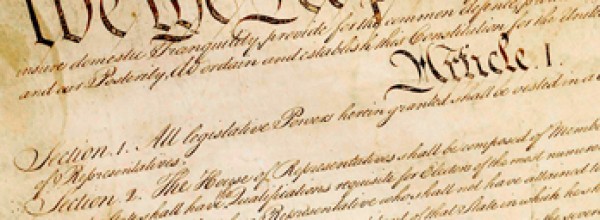 We the Peop
insure domestic Tranquility, provide for the common defence,
and our Posterity, do ordain and establish this Constitution for the United
Article. I.
Section. 1. All legislative Powers herein granted shall be vested in a
of Representatives.
Section. 2. The House of Representatives shall be composed of Membe
the
have Qualifications requisite for Electors of the most numerous
Representative who shall not have attained to
of that State in which he s